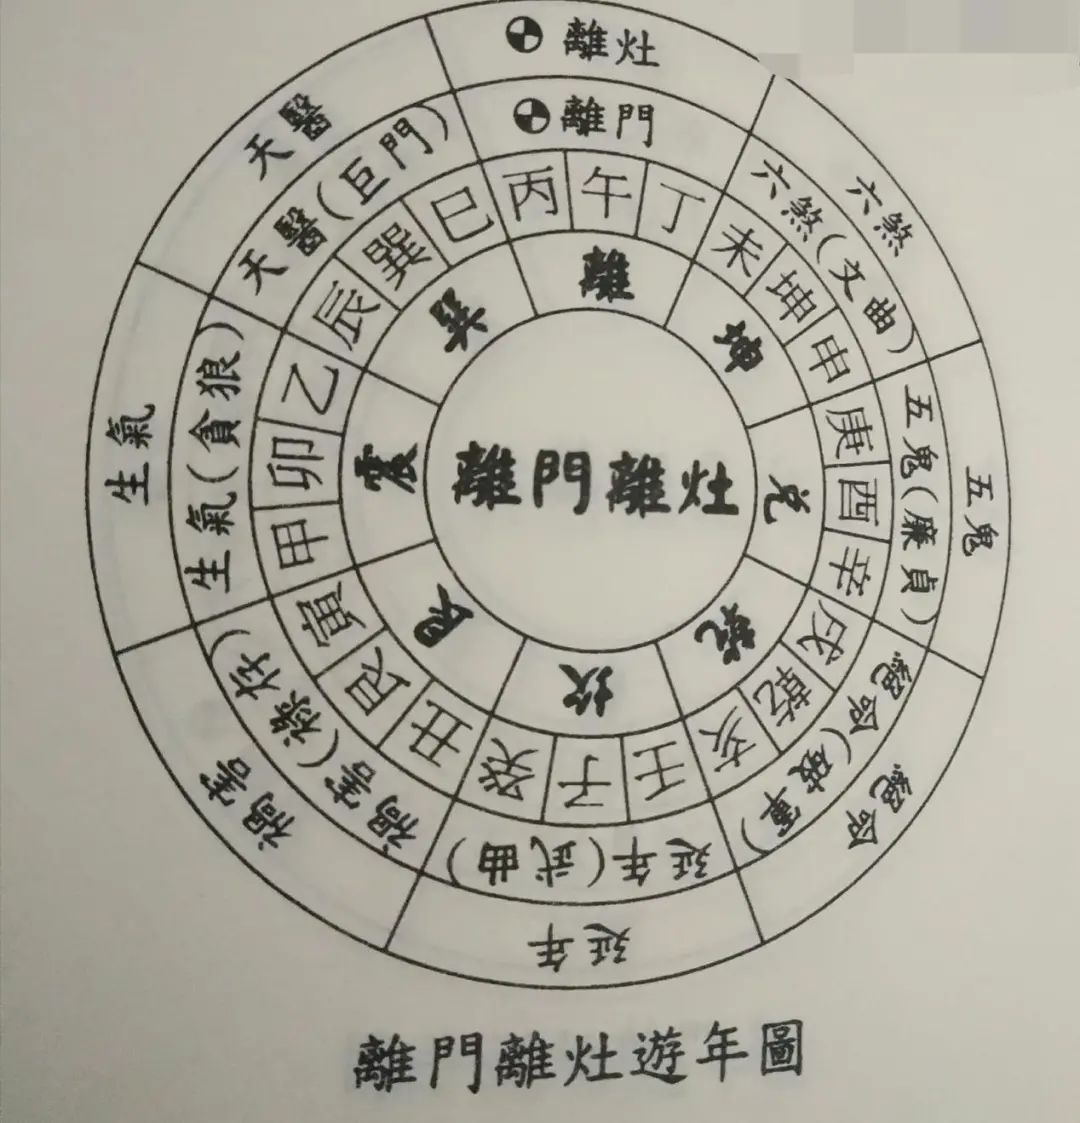 離灶
六煞
五鬼
絕命
延年
禍害
生氣
天醫
離門
六煞(文曲)
五鬼(廉貞)
絕命(破軍)
延年(武曲)
禍害(祿存)
生氣(貪狼)
天醫(巨門)
丙 午 丁
未 坤 申
庚 酉 辛
戌 乾 亥
壬 子 癸
丑 艮 寅
甲 卯 乙
辰 巽 巳
離
坤
兌
乾
坎
艮
震
巽
離門離灶
離門離灶遊年圖